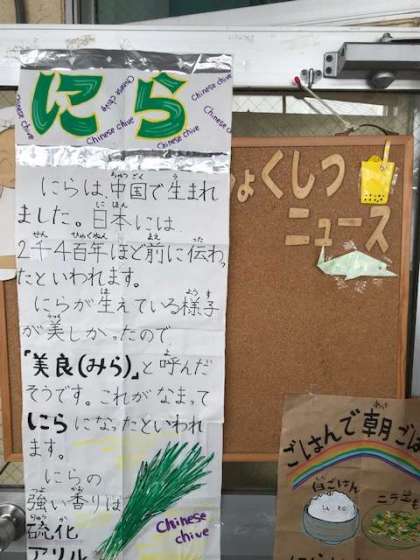 にら
Chinese chive
Chinese chive
Chinese chive
Chinese chive
Chinese chive
にらは、中国で生まれ
ました。日本には、
2千4百年ほど前に伝わっ
たといわれます。
にらが生えている様子
が美しかったので
「美良(みら)」と呼んだ
そうです。これがなまって
にらになったといわれ
ます。
にらの
強い香りは
硫化
アリル
Chinese
chive
ょくしつ
ニュース
ごはんで朝ごは
白ごはん
ニラ玉